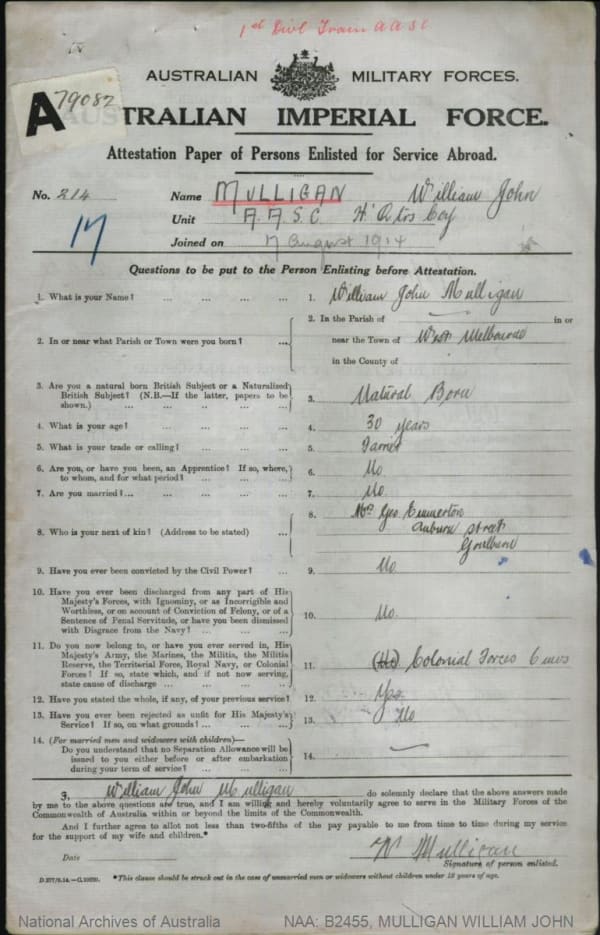 1st Divl Train A A S C
AUSTRALIAN MILITARY FORCES.
A 79082
AUSTRALIAN IMPERIAL FORCE.
Attestation Paper of Persons Enlisted for Service Abroad.
No. 214 Name MULLIGAN William John
17
Unit A. A. S. C H' Qtrs Coy
Joined on 17 August 1914
Questions to be put to the Person Enlisting before Attestation.
1. What is your Name? ... ... ... ... 1. William John Mulligan
2. In or near what Parish or Town were you born? ... 2. In the Parish of — in or
near the Town of West Melbourne
in the County of
3. Are you a natural born British Subject or a Naturalized
British Subject? (N.B.—If the latter, papers to be
shown.) ... ... ... ... ... 3. Natural Born
4. What is your age? ... ... ... ... 4. 30 years
5. What is your trade or calling? ... ... ... 5. Farrier
6. Are you, or have you been, an Apprentice? If so, where,
to whom, and for what period? ... ... ... 6. No
7. Are you married?... ... ... ... ... 7. No
8. Who is your next of kin? (Address to be stated) ... 8. Mrs Geo. Emmerton
Auburn Street
Goulburn
9. Have you ever been convicted by the Civil Power? ... 9. No
10. Have you ever been discharged from any part of His
Majesty's Forces, with Ignominy, or as Incorrigible and
Worthless, or on account of Conviction of Felony, or of a
Sentence of Penal Servitude, or have you been dismissed
with Disgrace from the Navy? ... ... ... 10. No.
11. Do you now belong to, or have you ever served in, His
Majesty's Army, the Marines, the Militia, the Militia
Reserve, the Territorial Force, Royal Navy, or Colonial
Forces? If so, state which, and if not now serving,
state cause of discharge ... ... ... ... 11. Colonial Forces
12. Have you stated the whole, if any, of your previous service? 12. Yes
13. Have you ever been rejected as unfit for His Majesty's
Service? If so, on what grounds? ... ... ... 13. No
14. (For married men and widowers with children)—
Do you understand that no Separation Allowance will be
issued to you either before or after embarkation
during your term of service? ... ... ... 14. —
I, William John Mulligan do solemnly declare that the above answers made
by me to the above questions are true, and I am willing and hereby voluntarily agree to serve in the Military Forces of the
Commonwealth of Australia within or beyond the limits of the Commonwealth.
And I further agree to allot not less than two-fifths of the pay payable to me from time to time during my service
for the support of my wife and children.*
Date W Mulligan
Signature of person enlisted.
*This clause should be struck out in the case of unmarried men or widowers without children under 18 years of age.
National Archives of Australia NAA: B2455, MULLIGAN WILLIAM JOHN